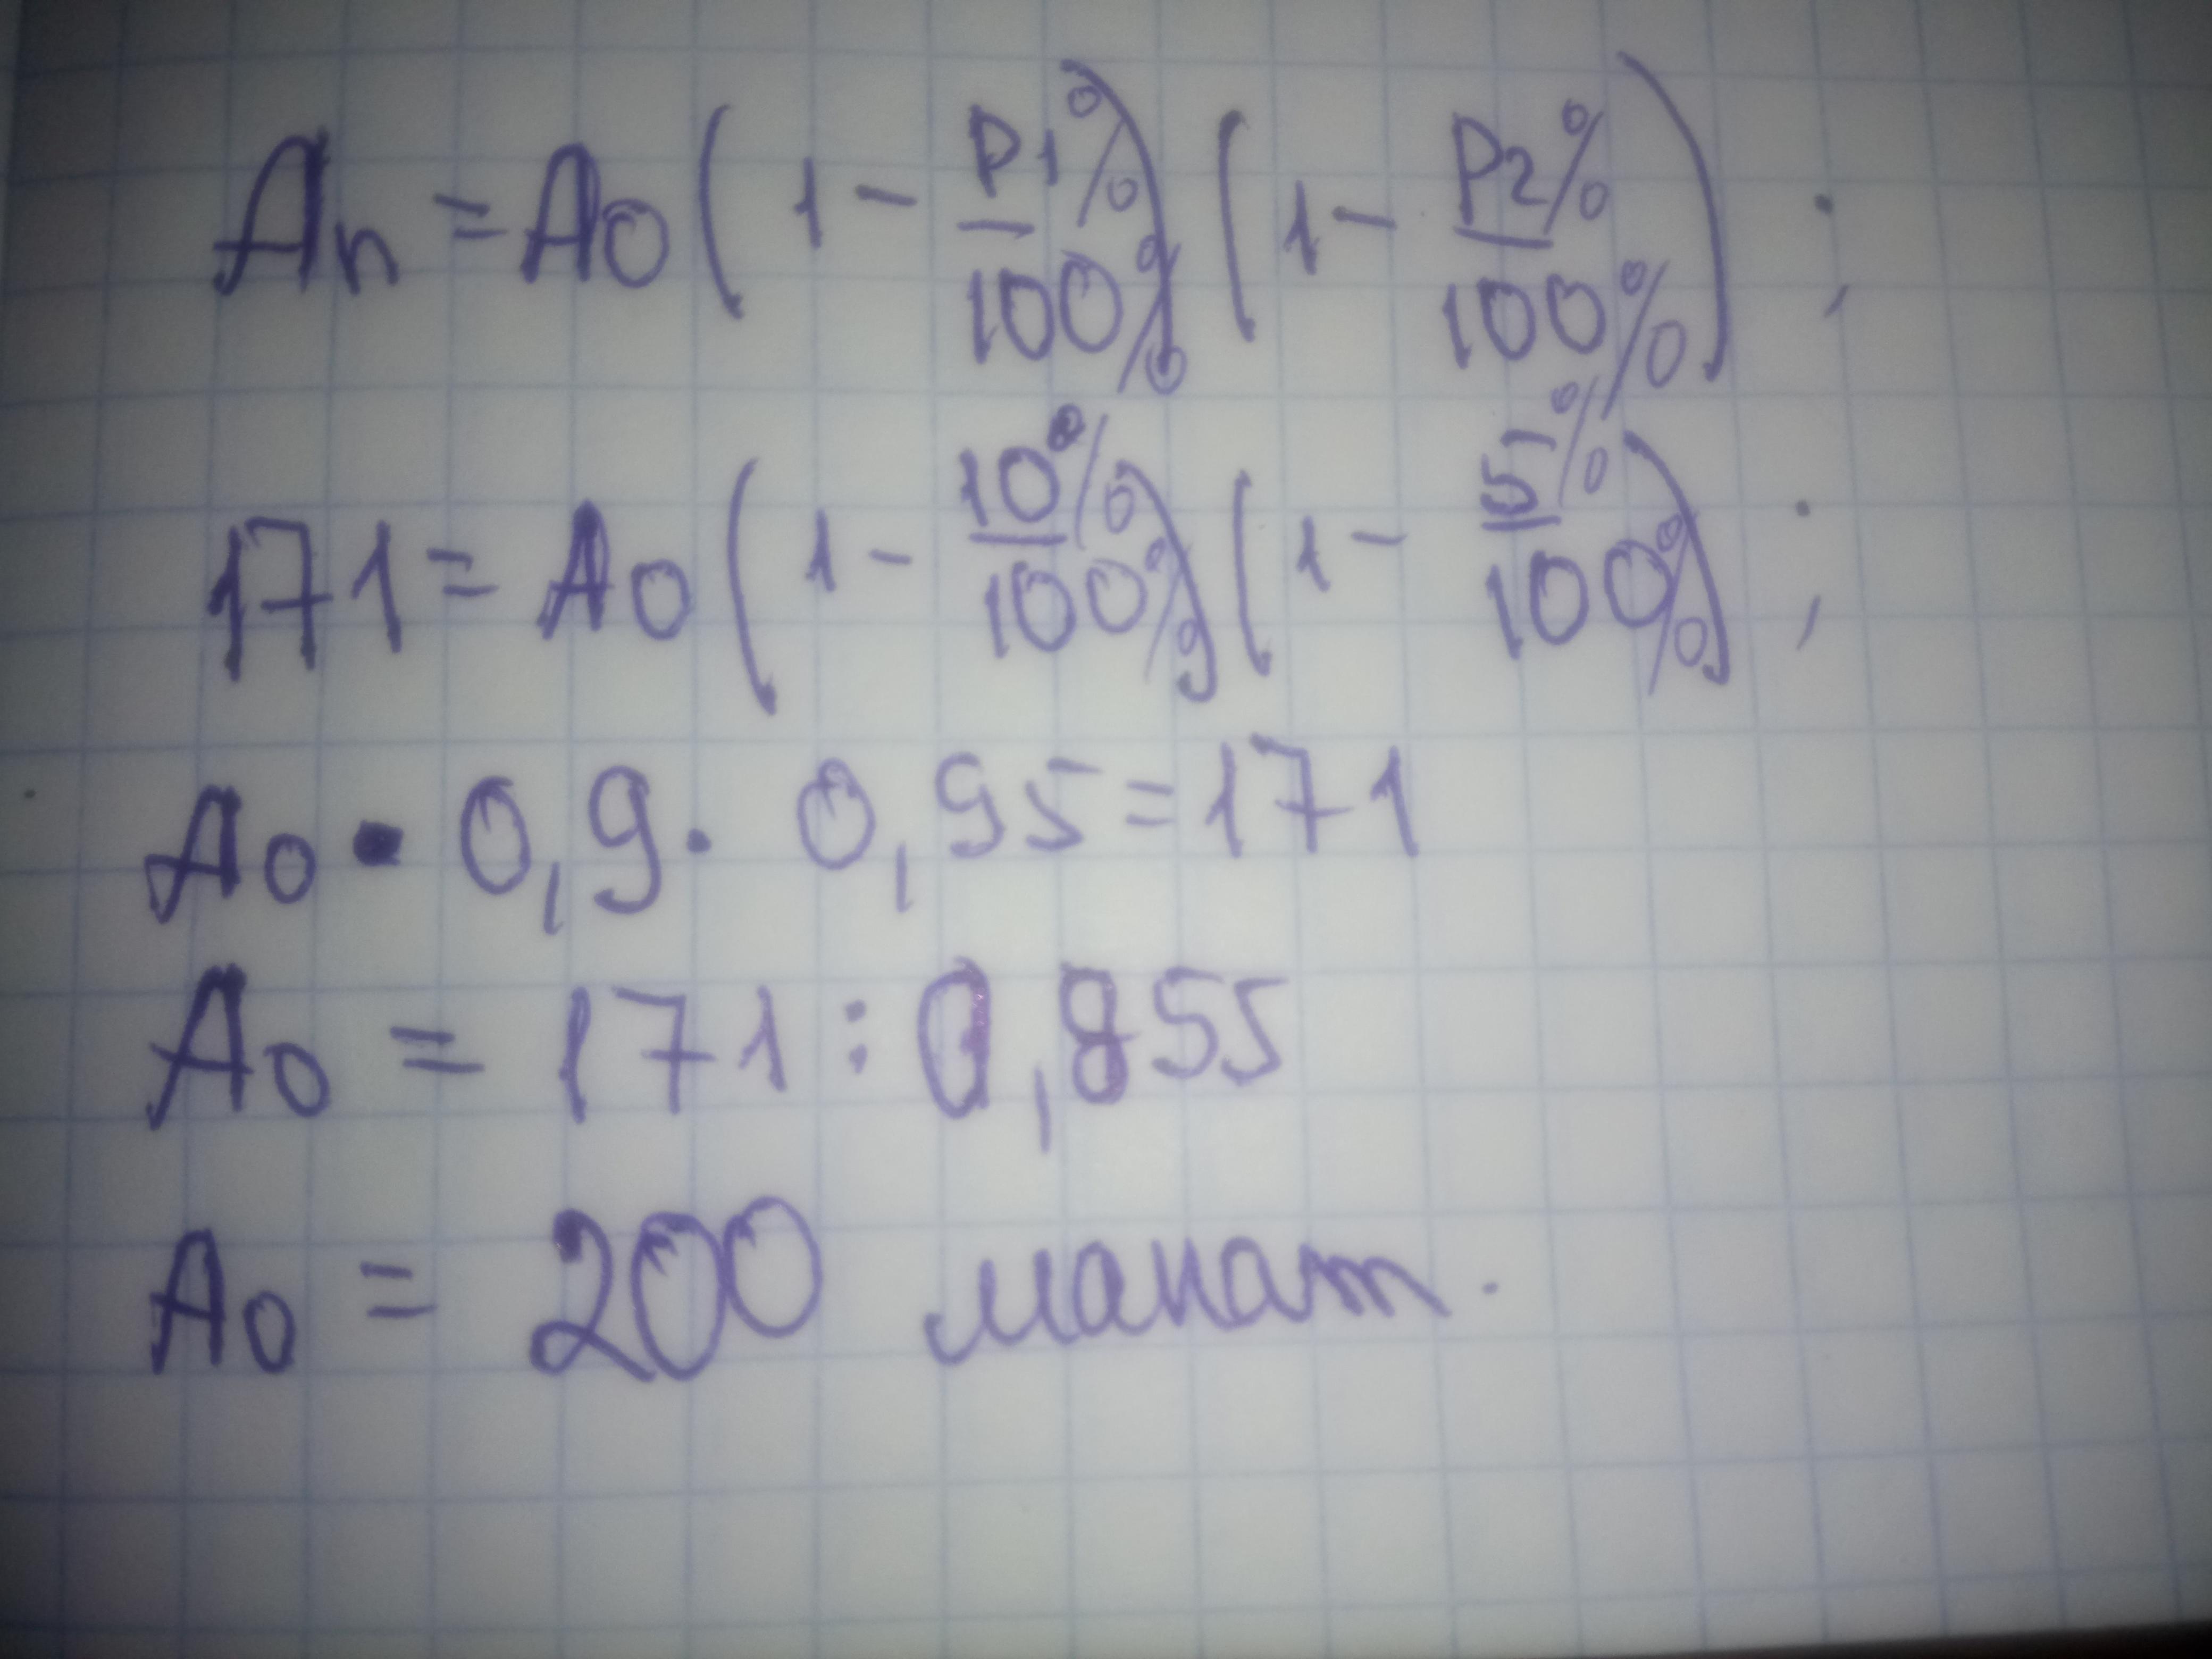 An = A0 (1 - P1%/100%) (1 - P2%/100%) ;
171 = A0 (1 - 10%/100%) (1 - 5%/100%) ;
A0 · 0,9 · 0,95 = 171
A0 = 171 : 0,855
A0 = 200 манат.